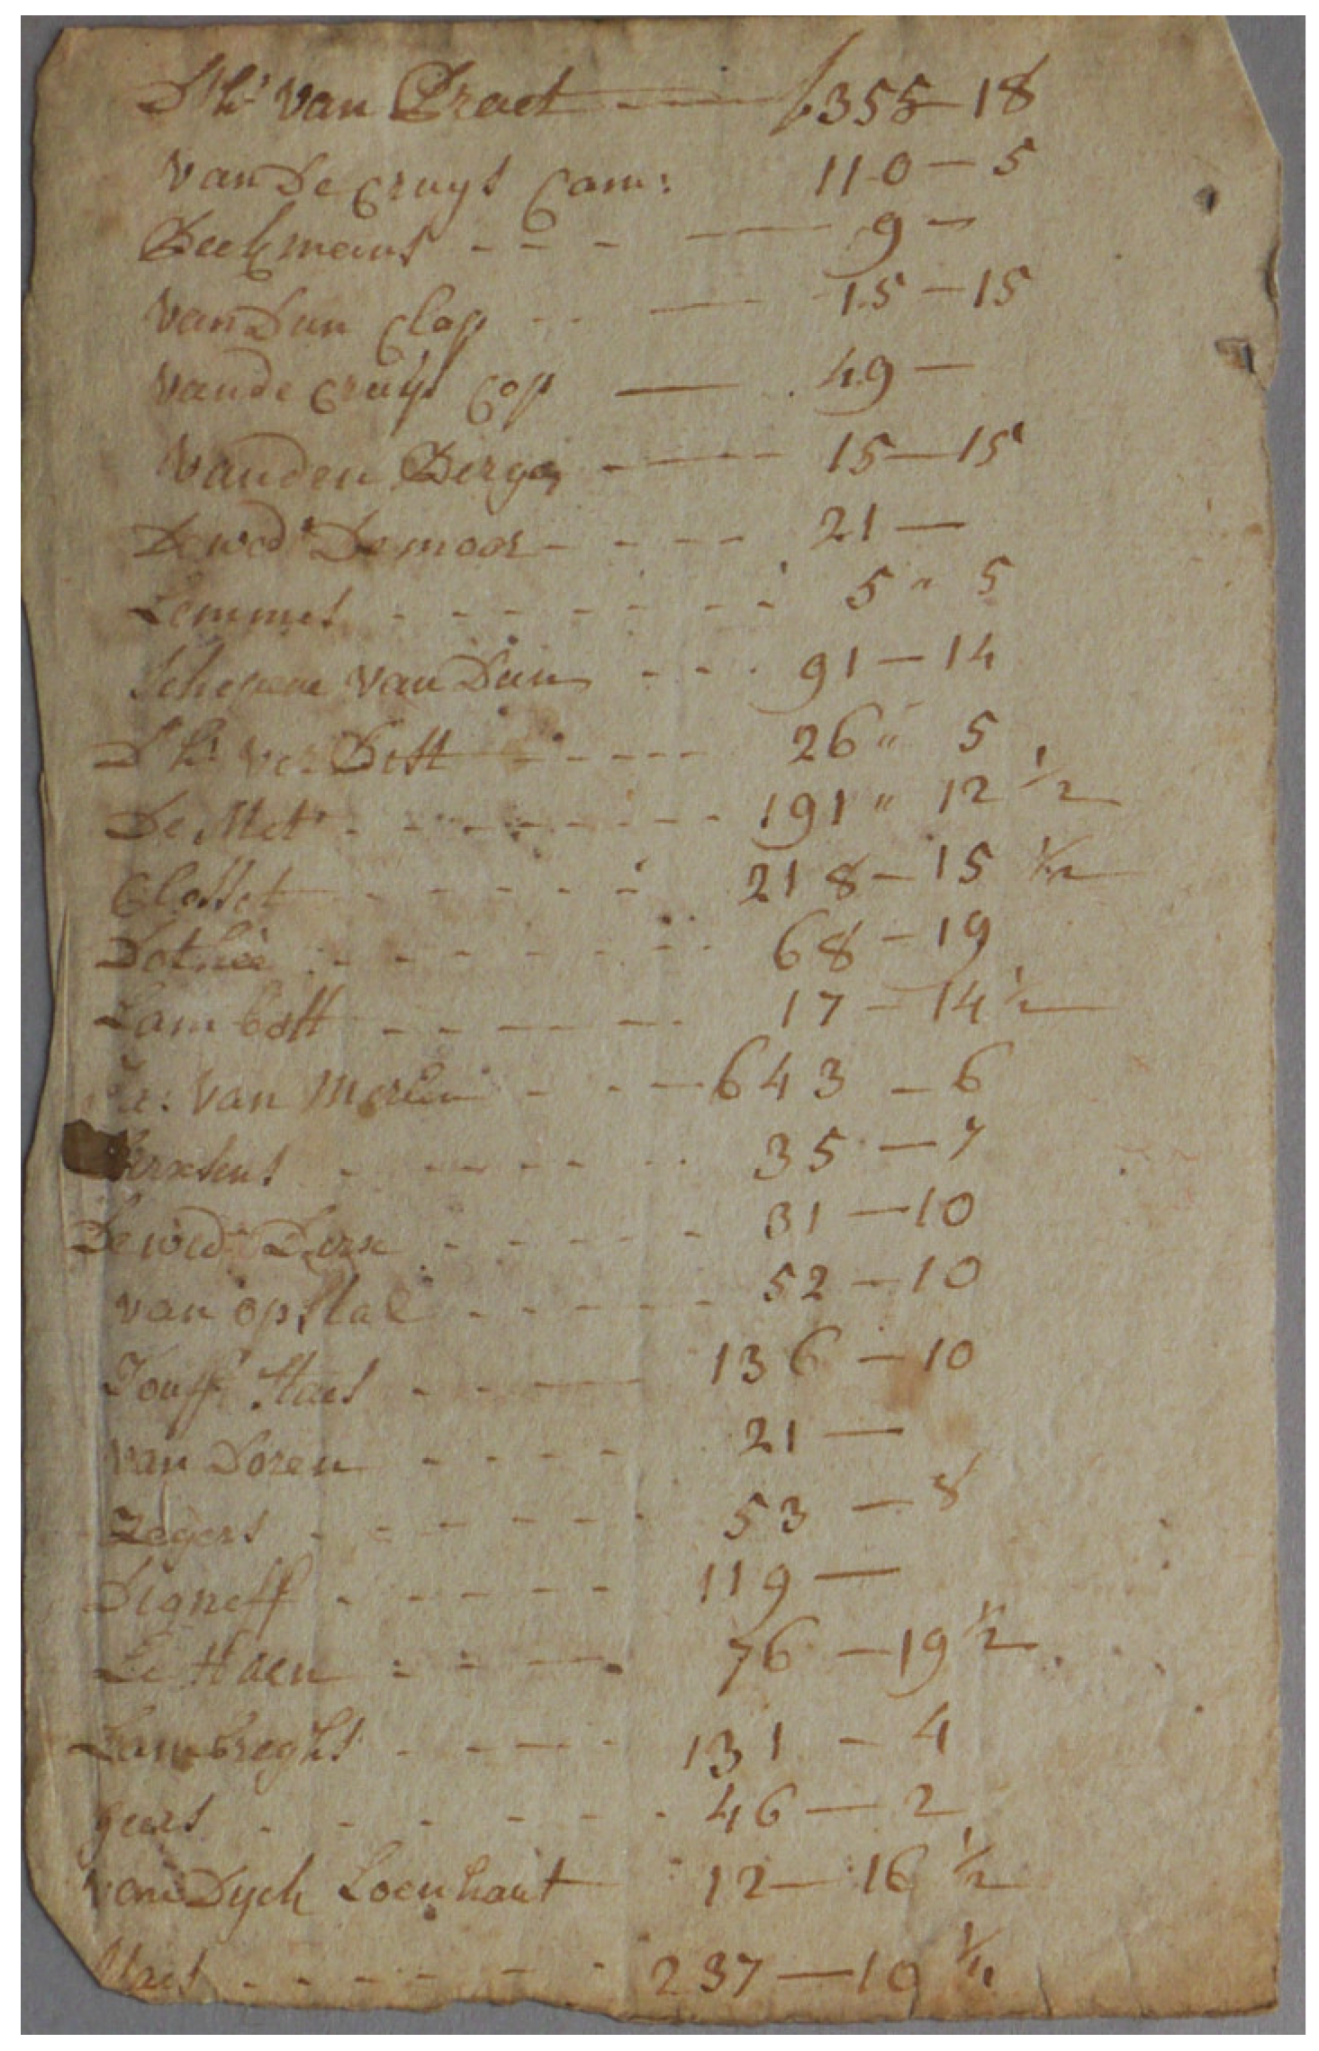 D'hr van Praet f 355-18
van De Cruys Cam: 110-5
Beekmans - - - 9-
van Dun Clap - - 15-15
vande Cruys Cop 49-
vanden Berge 15-15
De wed.e De moor - - - - 21-
Lemmes - - - - - - 5 " 5
Schepene van Dun - - - 91-14
D hr ver Dett - - - - 26 " 5
De Met - - - - - - - 191 " 12 1/2
Closset - - - - - - 218-15 1/2
Dothée - - - - - - - 68-19
Lambott - - - - - - 17-14 1/2
van Merlen - - - 643-6
- - - - - - 35-7
De wed.e Dirx - - - - - 31-10
van opstal - - - - - 52-10
Jouff Staes - - - - 136-10
van Doren - - - - 21-
Zegers - - - - - - 53-8
Digneff - - - - - 119-
De Haen - - - - 76-19 1/2
Lambreghts - - - - 131-4
geers - - - - - - 46-2
van Dyck Loenhout 12-16 1/2
Staes - - - - - - 237-19 1/2